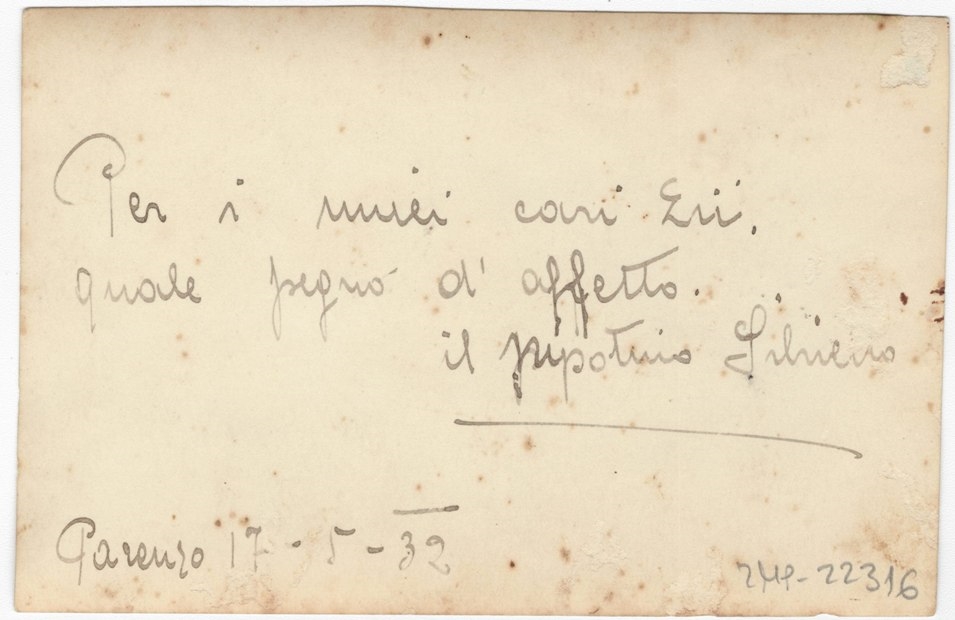 Per i miei cari Zii,
quale pegno d'affetto.
il nipotino
Parenzo 17-5-32
ZMP-22316